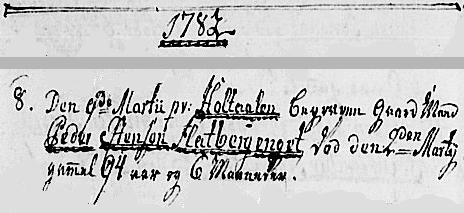 1782
8. Den 9de Martii pr: Holtaalen Begraven Gaard Mand
Peder Stenson Fladbergenget död den 2den Martij
gamel 94 aar og 6 Maaneder.